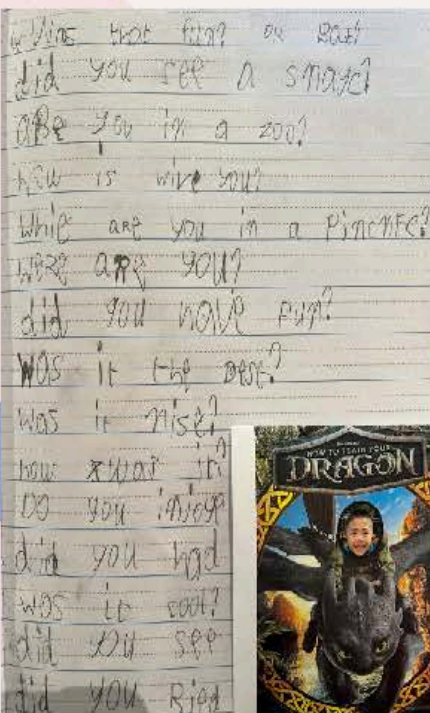 that fun? or Bad?
did you see a snake?
are you in a zoo?
how is wive you?
While are you in a
were are you?
did you have fun?
was it the best?
was it nise?
how was it?
Do you injoye
did you had
was it cool?
did you see
did you Ried
HOW TO TRAIN YOUR
DRAGON